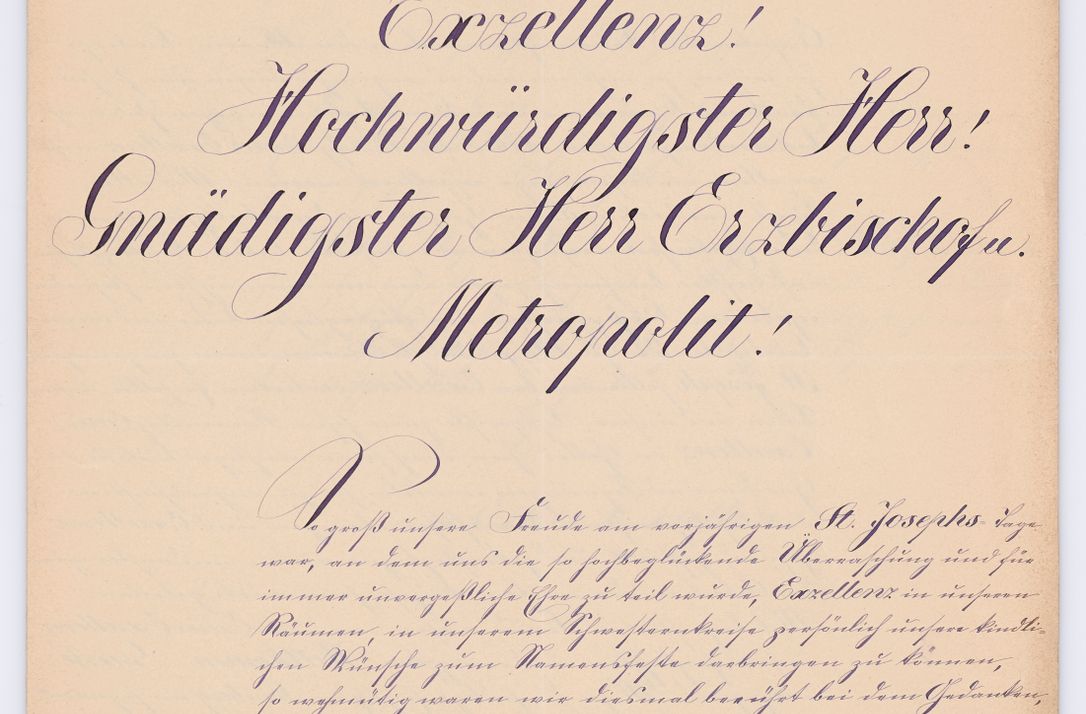 Exzellenz!
Hochwürdigster Herr!
Gnädigster Herr Erzbischof u.
Metropolit!
So groß unsere Freude am vorjährigen St. Josephs-Tage
war, an dem uns die so hochbeglückende Überraschung und für
immer unvergeßliche Ehre zu teil wurde, Exzellenz in unseren
Räumen, in unserem Schwesternkreise persönlich unsere kindli-
chen Wünsche zum Namensfeste darbringen zu können,
so wehmütig waren wir diesmal berührt bei dem Gedanken,